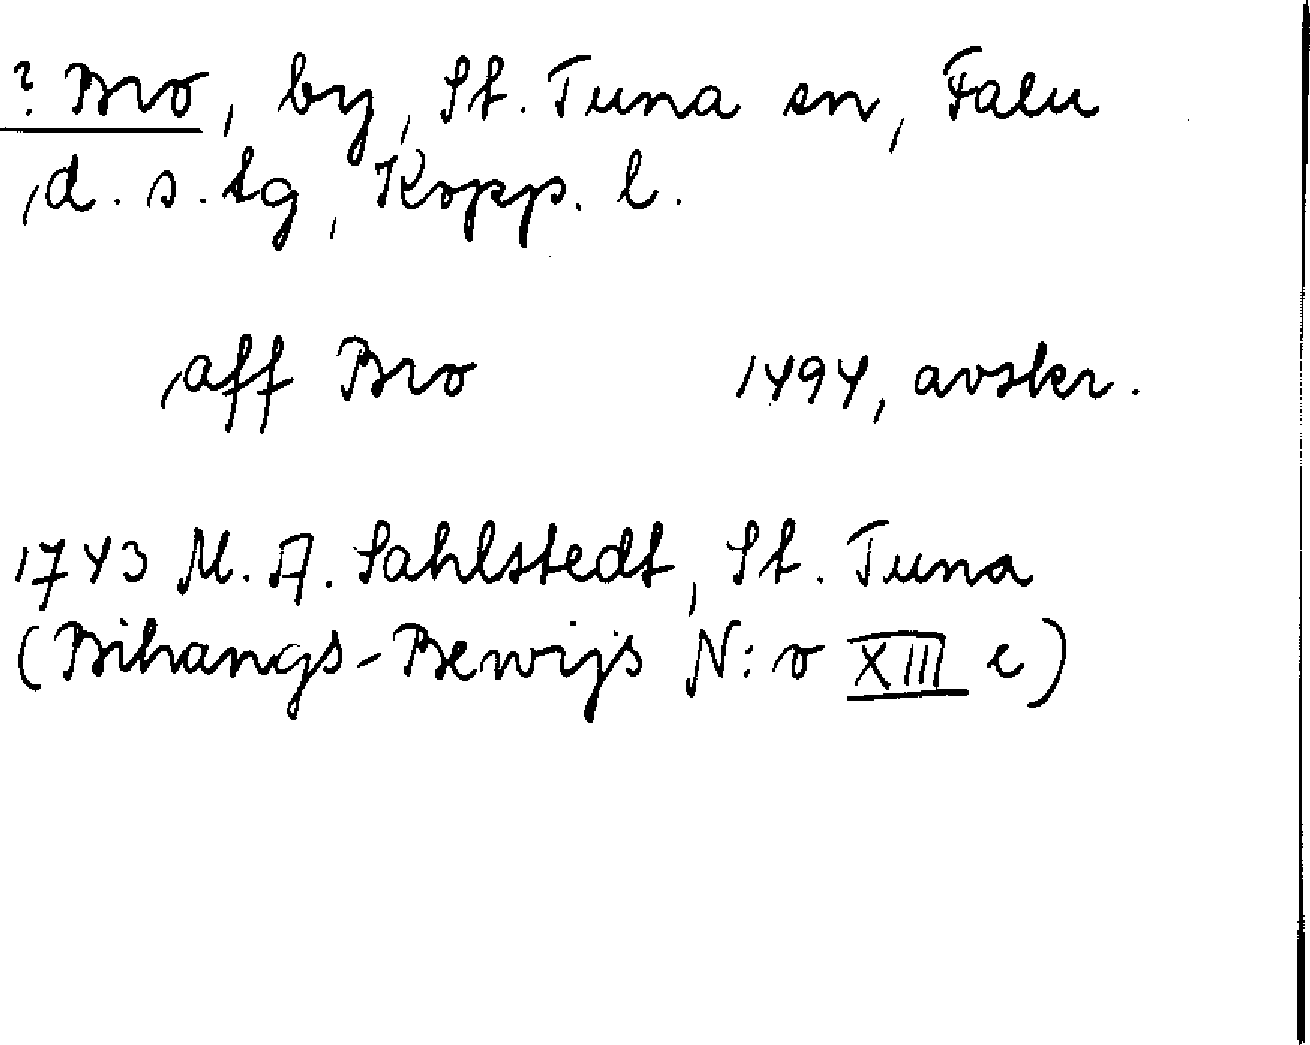 ? Bro, by, St. Tuna sn, Falu
d. s. tg, Kopp. l.
aff Bro 1494, avskr.
1743 M. A. Sahlstedt, St. Tuna
(Bihangs-Bewijs N:o XIII c)